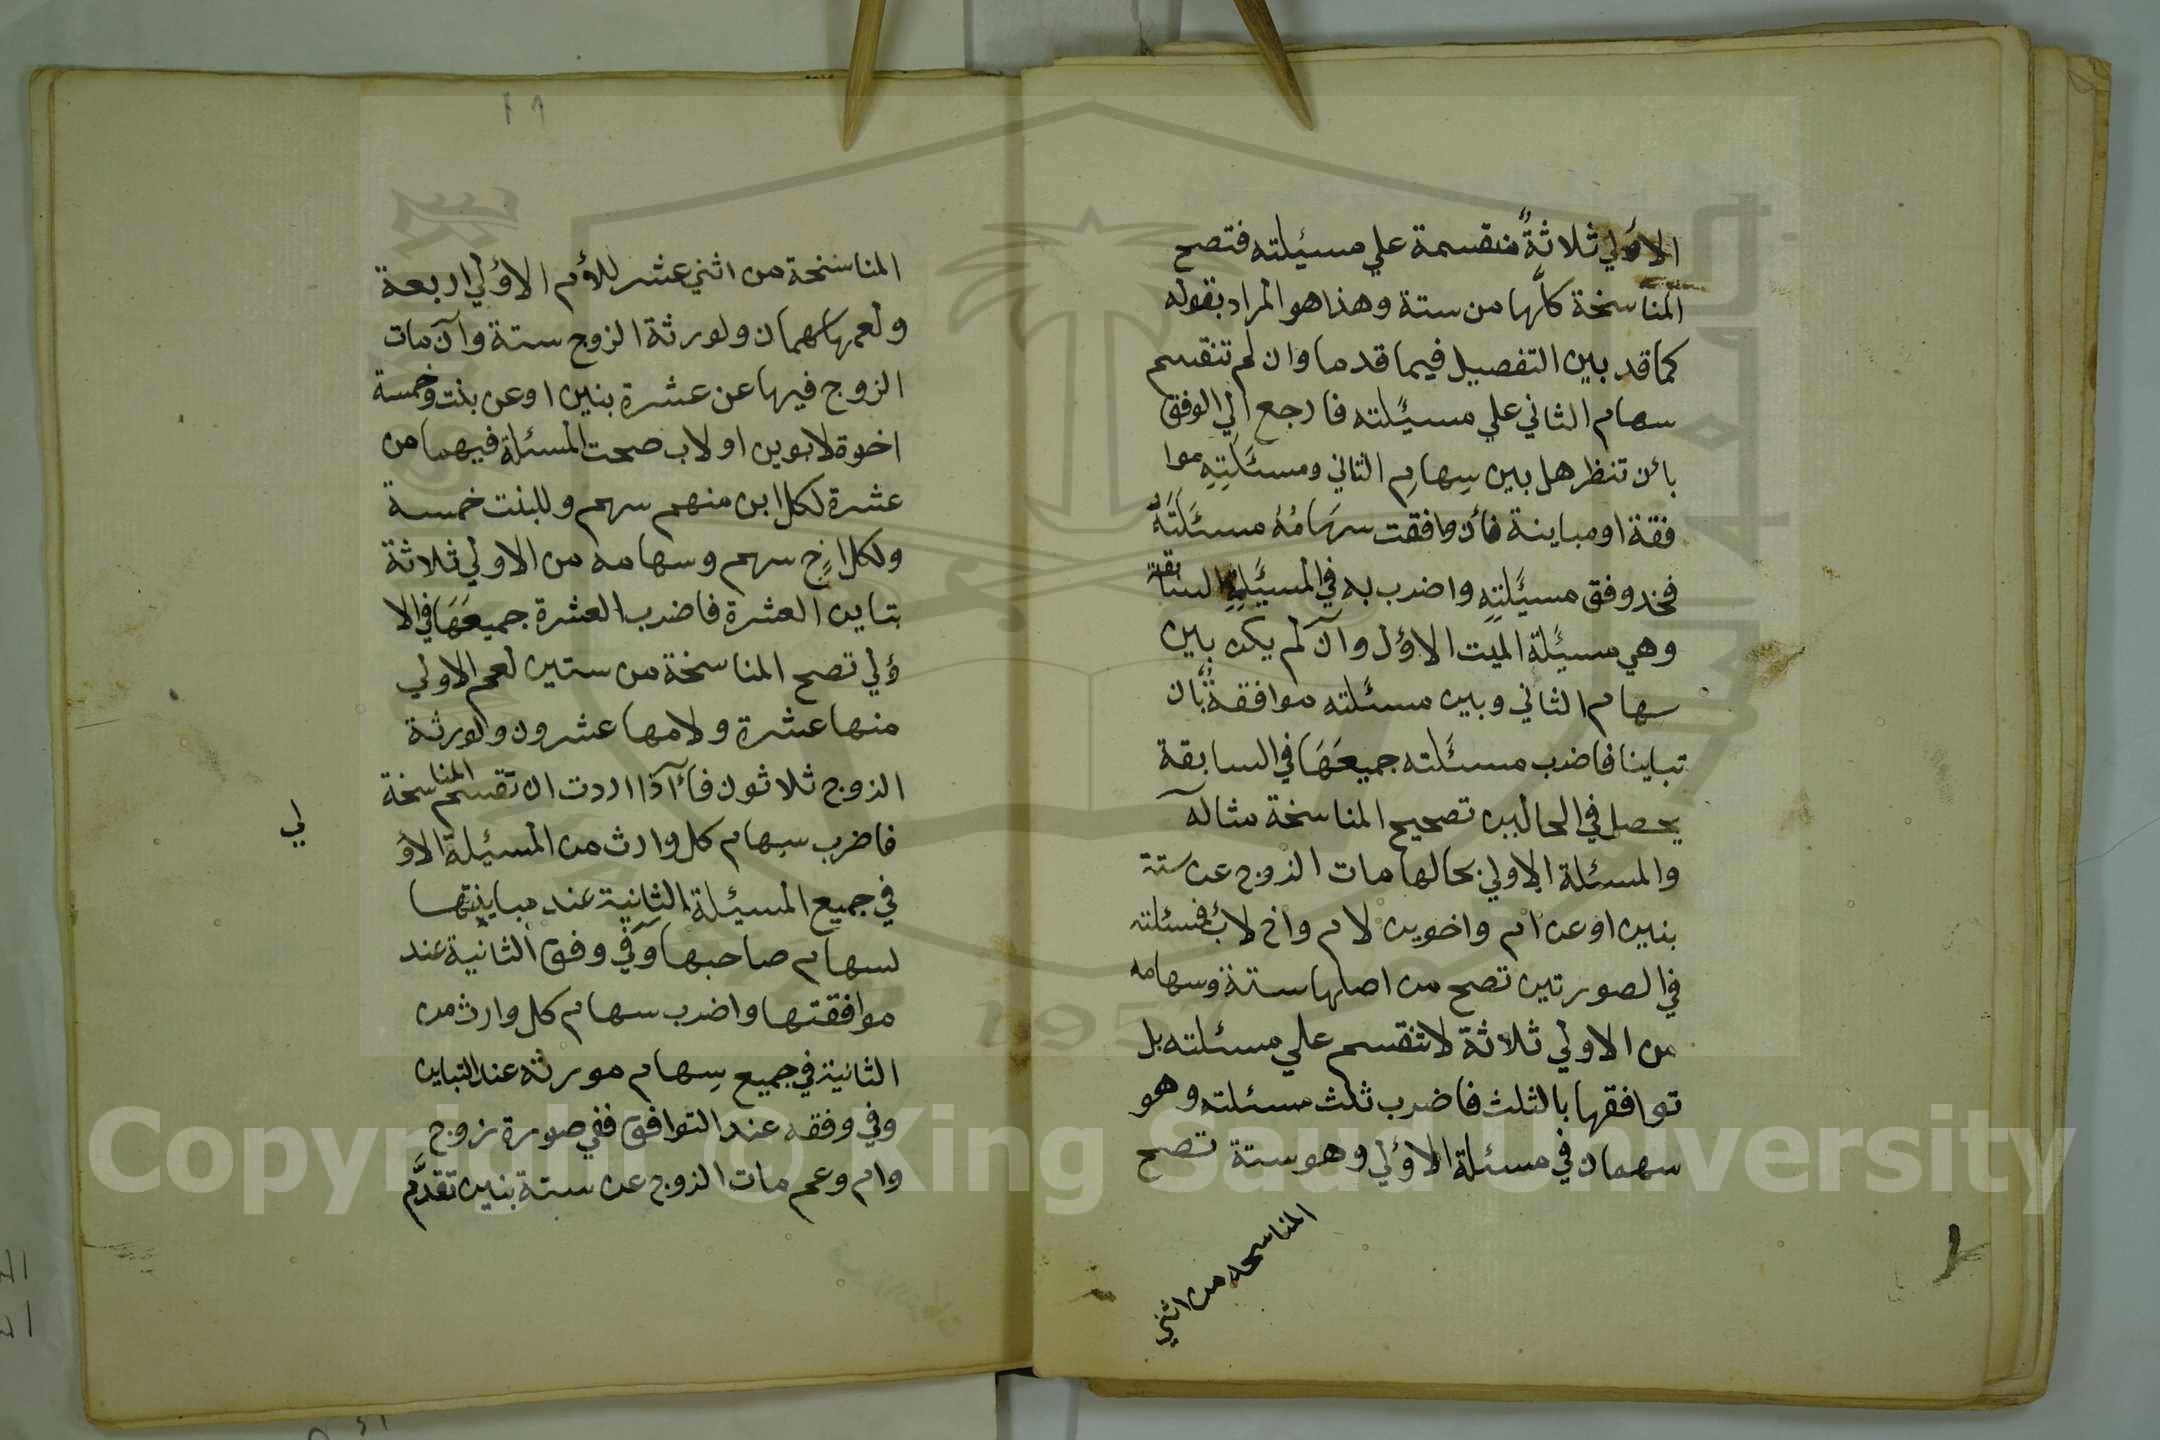 الاولي ثلاثةٌ منقسمة علي مسيئلته فتصح
المناسخة كلَّها من ستة وهذا هو المراد بقوله
كما قد بين التفصيل فيما قدما وان لم تنقسم
سهام الثاني علي مسيئلته فارجع الي الوفق
بائن تنظر هل بين سِهامِ الثاني ومسئَلَتِهِ موا
فقة او مباينة فأن وافقت سهَامُهُ مسئَلَتَهُ
فخذ وفق مسيئَلتِهِ واضرب به في المسيئَلةِ السابقة
وهي مسيئَلة الميت الاؤل وان لم يكن بين
سهام الثاني وبين مسئلته موافقةٌ بان
تباينا فاضرب مسئَلته جميعَهَا في السابقة
يحصل في الحالين تصحيح المناسخة مثاله
والمسئلة الاولي بحالها مات الزوج عن ستة
بنين او عن ام واخوين لام واخ لاب فمسئلته
في الصورتين تصح من اصلها ستة وسهامه
من الاولي ثلاثة لا تنقسم علي مسئلته بل
توافقها بالثلث فاضرب ثلث مسئلته وهو
سهمان في مسئلة الاؤلي وهو ستة تصح
المناسخه من اثني
٢٩
المناسخة من اثني عشر للأم الاؤلي اربعة
ولعمها سهمان ولورثة الزوج ستة وان مات
الزوج فيها عن عشرة بنين او عن بنت وخمسة
اخوة لابوين او لاب صحت المسئلة فيهما من
عشرة لكل ابن منهم سهم وللبنت خمسة
ولكل اخ سهم وسهامه من الاولي ثلاثة
تباين العشرة فاضرب العشرة جميعَهَا في الا
ؤلي تصح المناسخة من ستين لعم الاولي
منها عشرة ولامها عشرون ولورثة
الزوج ثلاثون فأذا اردت ان تقسم المناسخة
فاضرب سهام كل وارث من المسيئلة الاؤ
لي
في جميع المسيئلة الثانية عند مباينتها
لسهام صاحبها وَفي وفق الثانية عند
موافقتها واضرب سهام كل وارث من
الثانية في جميع سِهام مورثه عند التباين
وفي وفقه عند التوافق ففي صورة زوج
وام وعم مات الزوج عن ستة بنين تقدَّم
Copyright © King Saud University
1957